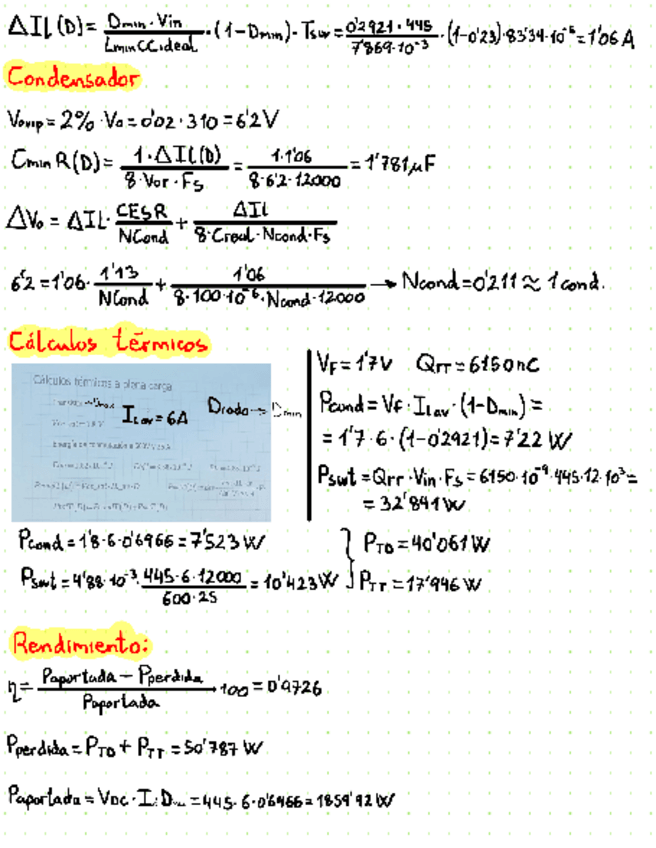 ΔIL(D) = (Dmin · Vin) / (Lmin CC ideal) · (1-Dmin) · Tsw = (0'2921 · 445) / (7'869·10⁻³) · (1-0'29) · 83'34·10⁻⁶ = 1'06 A
Condensador
Vo = 2% · Vo = 0'02 · 310 = 6'2 V
Cmin R(D) = (1 · ΔIL(D)) / (8 · Vor · Fs) = (1·1'06) / (8·6'2·12000) = 1'781 μF
ΔVo = ΔIL · CESR / NCond + ΔIL / (8·Creal·Ncond·Fs)
6'2 = 1'06 · 1'13 / NCond + 1'06 / (8·100·10⁻⁶·Ncond·12000) → Ncond = 0'211 ≈ 1 cond.
Cálculos térmicos
Cálculos térmicos a plena carga
ILav = 6A Diodo → Dmin
VF = 1'7V Qrr = 6150nC
Pcond = VF · ILav · (1-Dmin) =
= 1'7 · 6 · (1-0'2921) = 7'22 W
Pswt = Qrr · Vin · Fs = 6150·10⁻⁹·445·12·10³ =
= 32'841 W
Pcond = 1'8·6·0'6966 = 7'523 W
Pswt = 4'88·10⁻³ · (445·6·12000) / (600·25) = 10'423 W
PTD = 40'061 W
PTT = 17'946 W
Rendimiento:
η = (Paportada - Pperdida) / Paportada · 100 = 0'9726
Pperdida = PTD + PTT = 50'787 W
Paportada = VDC · I · D = 445 · 6 · 0'6966 = 1859'92 W